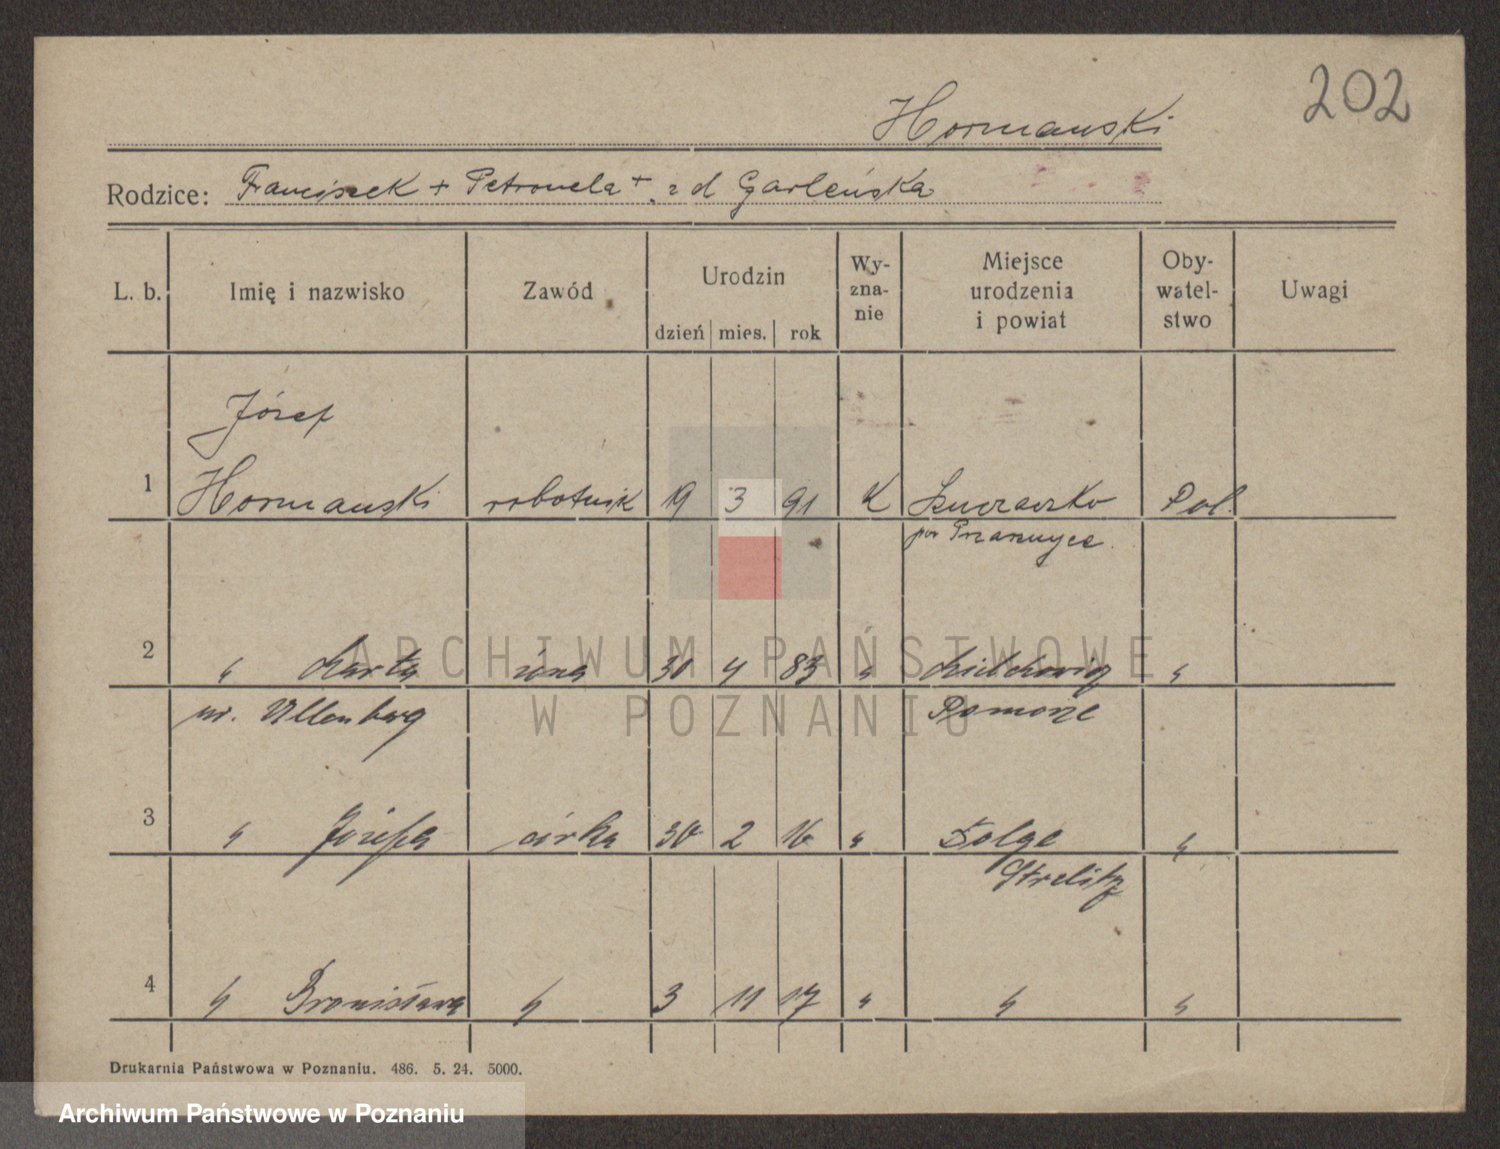 202
Hormański
Rodzice: Franciszek + Petronela + z d Garleńska
L. b. Imię i nazwisko Zawód Urodzin dzień mies. rok Wy-zna-nie Miejsce urodzenia i powiat Oby-watel-stwo Uwagi
Józef
1 Hormański robotnik 19 3 91 K Pol.
pow
2 " Marta żona 30 4 83 " "
ur. Ullenberg Pomorze
3 " Józefa córka 30 2 16 " "
Strelitz
4 " Bronisława " 3 11 17 " " "
Drukarnia Państwowa w Poznaniu. 486. 5. 24. 5000.
ARCHIWUM PAŃSTWOWE
W POZNANIU
Archiwum Państwowe w Poznaniu